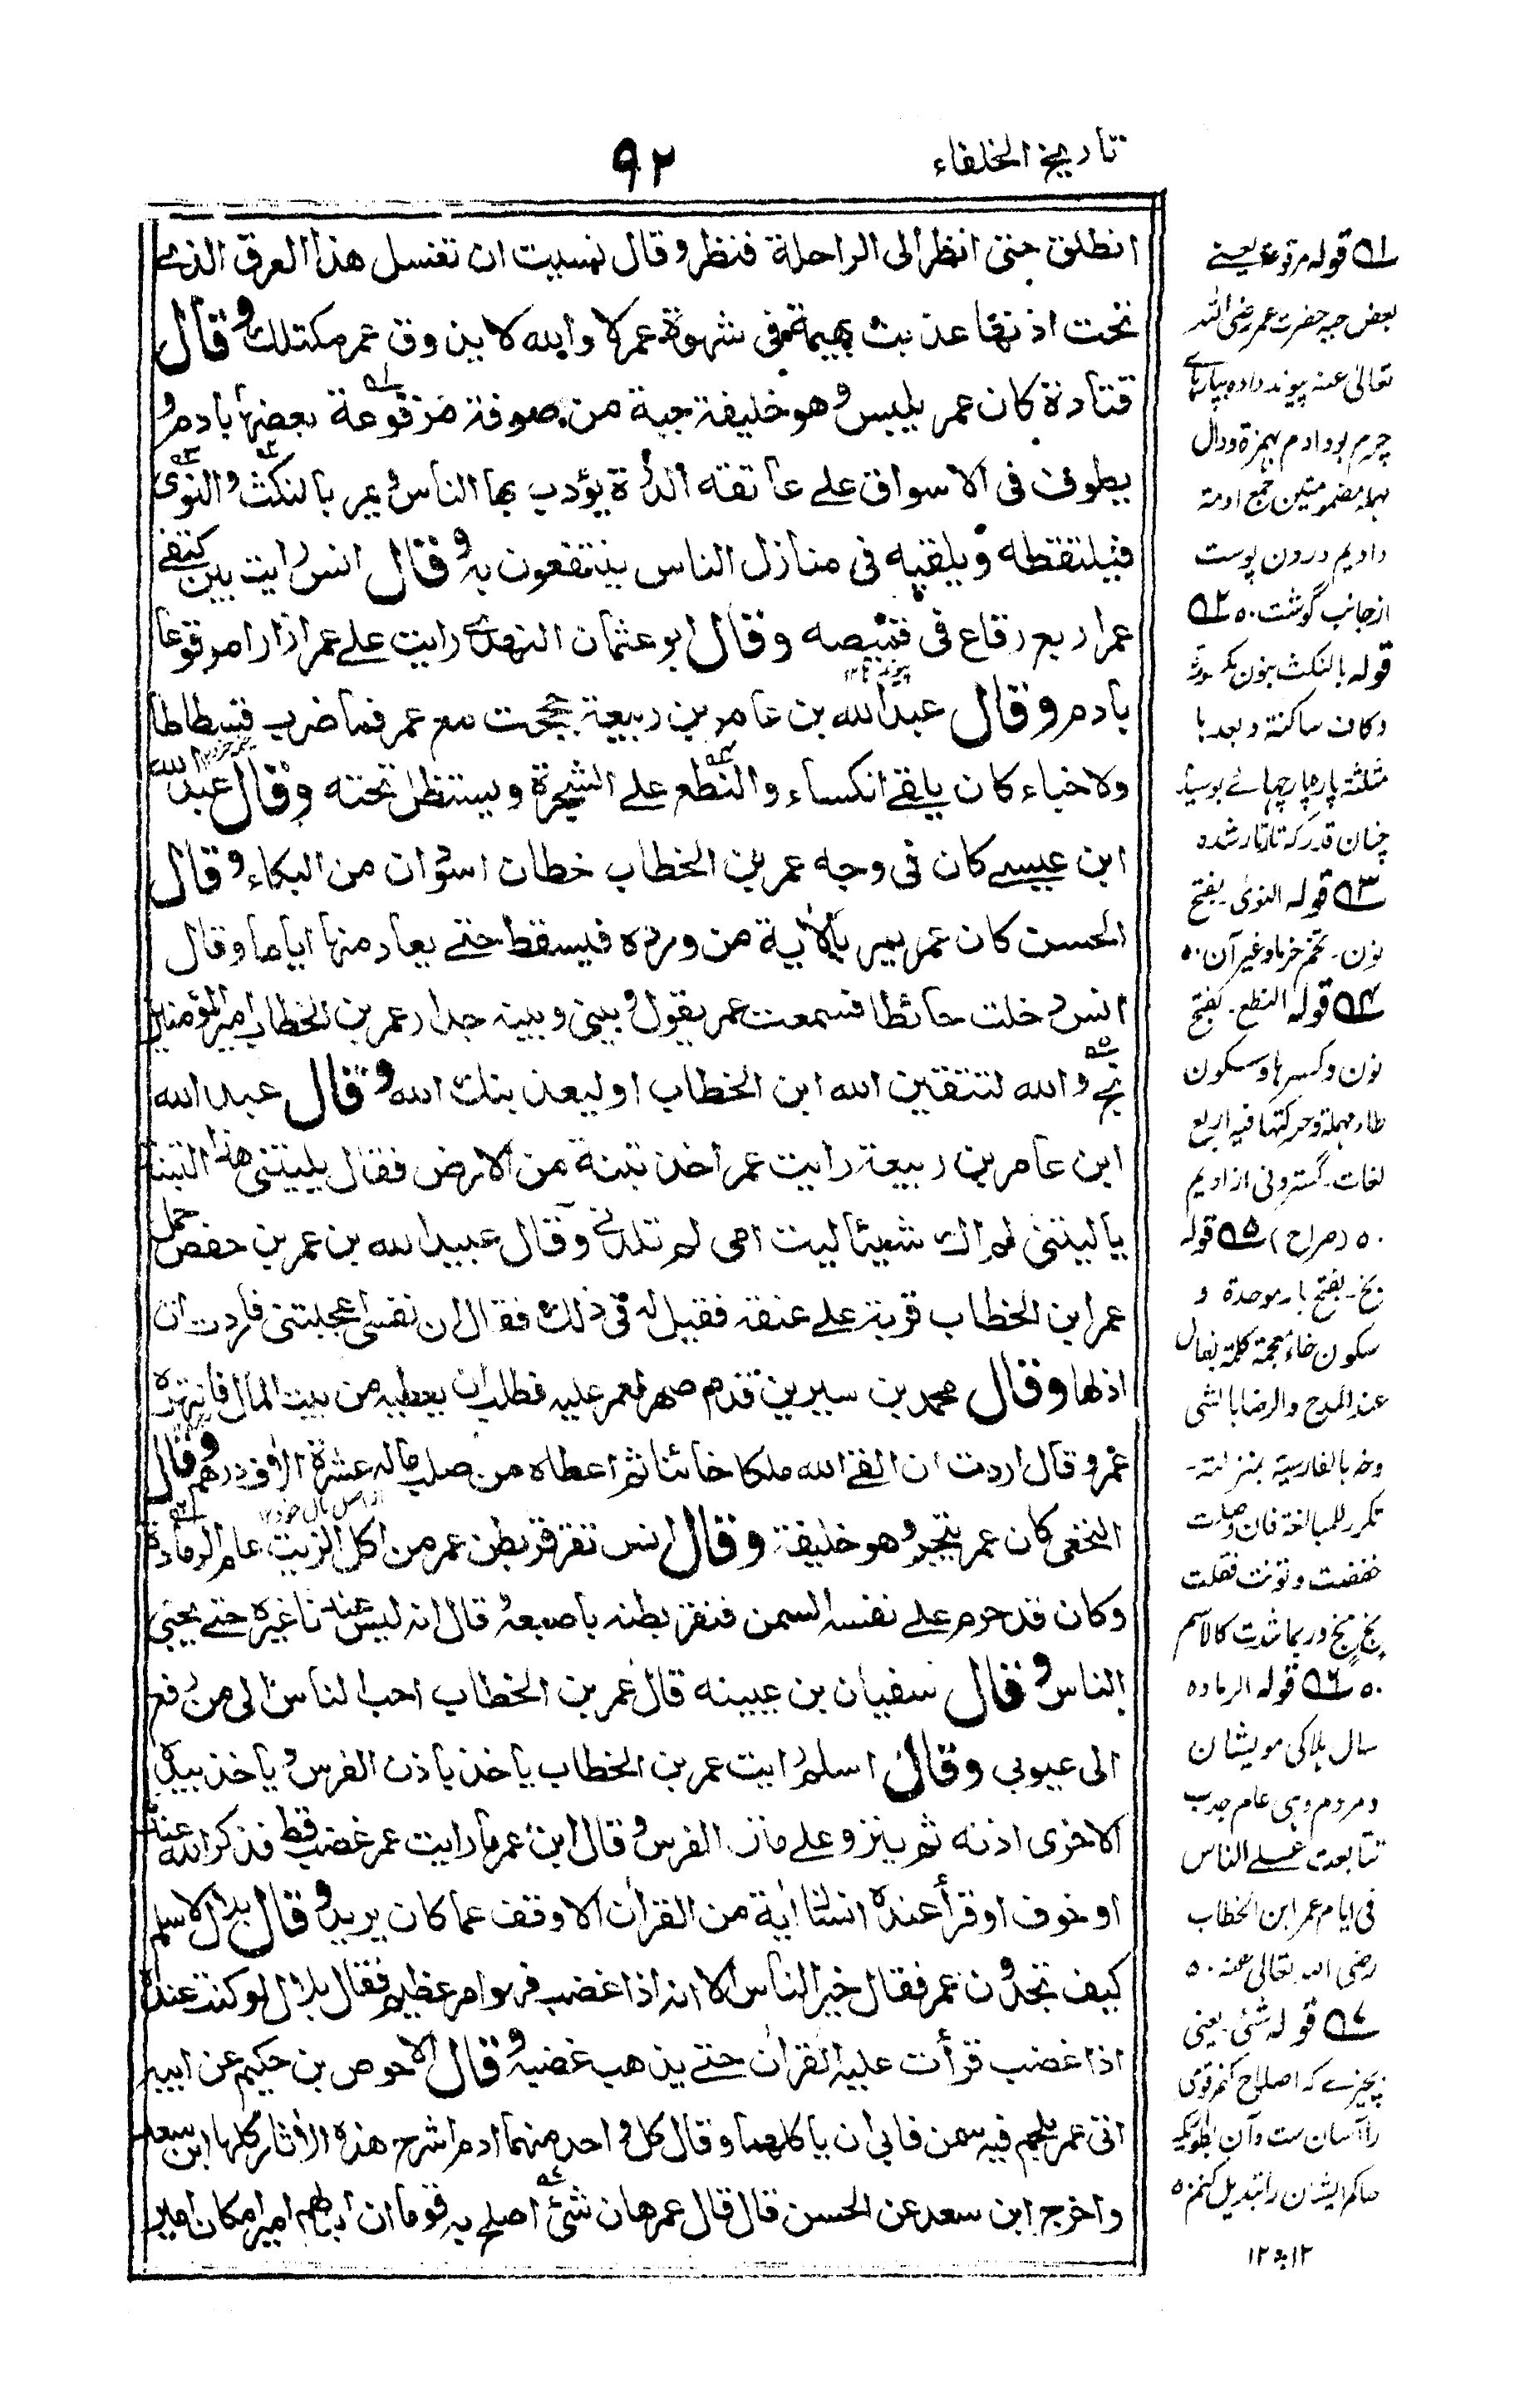 تاريخ الخلفاء
٩٢
انطلق حتى انظر الى الراحلة فنظر وقال نسيت ان تغسل هذا العرق الذي
تحت اذنها عذبت بهيمة في شهوة عمر لا والله لا يذوق عمر مكتلك وقال
قتادة كان عمر يلبس وهو خليفة جبة من صوفة مرقوعة بعضها بادم و
يطوف فى الاسواق على عاتقه الدرة يؤدب بها الناس ويمر بالنكث والنوى
فيلتقطه ويلقيه فى منازل الناس ينتفعون به وقال انس رايت بين كتفي
عمر اربع رقاع فى قميصه وقال ابو عثمان النهدي رايت على عمر ازارا مرقوعا
بادم وقال عبد الله بن عامر بن ربيعة حججت مع عمر فما ضرب فسطاطا
ولا خباء كان يلقي الكساء والنطع على الشجرة ويستظل تحته وقال عبد الله
ابن عيسى كان فى وجه عمر بن الخطاب خطان اسودان من البكاء وقال
الحسن كان عمر يمر بالأية من ورده فيسقط حتى يعاد منها اياما وقال
انس دخلت حائطا فسمعت عمر يقول وبينى وبينه جدار عمر بن الخطاب امير المؤمنين
بخ والله لتتقين الله ابن الخطاب او ليعذبنك الله وقال عبد الله
ابن عامر بن ربيعة رايت عمر اخذ تبنة من الارض فقال يليتنى هذا التبنة
يا ليتنى لم اك شيئا ليت امى لم تلدنى وقال عبيد الله بن عمر بن حفص حمل
عمر ابن الخطاب قربة على عنقه فقيل له فى ذلك فقال ان نفسى اعجبتنى فاردت ان
اذلها وقال محمد بن سيرين قدم صهر لعمر عليه فطلب ان يعطيه من بيت المال فانتهره
عمر وقال اردت ان القى الله ملكا خائنا ثم اعطاه من صلب ماله عشرة الاف درهم وقال
النخعى كان عمر يتجر وهو خليفة وقال انس تقرقر بطن عمر من اكل الزيت عام الرمادة
وكان قد حرم على نفسه السمن فنقر بطنه باصبعه وقال انه ليس عندنا غيره حتى يحيى
الناس وقال سفيان بن عيينه قال عمر بن الخطاب احب الناس الى من رفع
الى عيوبى وقال اسلم رايت عمر بن الخطاب ياخذ باذن الفرس وياخذ بيده
الاخرى اذنه ثم ينزو على متن الفرس وقال ابن عمر ما رايت عمر غضب قط فذكر الله عنده
او خوف او قرأ عنده انسان أية من القران الا وقف عما كان يريد وقال بلال لاسلم
كيف تجدون عمر فقال خير الناس الا انه اذا غضب فهو امر عظيم فقال بلال لو كنت عنده
اذا غضب قرأت عليه القران حتى يذهب غضبه وقال الاحوص بن حكيم عن ابيه
اتى عمر بلحم فيه سمن فابى ان ياكلهما وقال كل واحد منهما ادم اخرج هذه الأثار كلها ابن سعد
واخرج ابن سعد عن الحسن قال قال عمر هان شئ اصلح به قوما ان ابدلهم اميرا مكان امير
٥١ قوله مرقوعة يعني
بعض جبه حضرت عمر رضى الله
تعالى عنه پيوند داده بپارهاے
چرم بود ادم بهمزة ودال
مهمله مضمومتين جمع ادمة
واديم درون پوست
از جانب گوشت ٥٠ ٥٢
قوله بالنكث بنون مكسورة
وكاف ساكنة وبعدها
مثلثة پارچهاے بوسيده
چنان قدر كه تار تار شده
٥٣ قوله النوى بفتح
نون تخم خرما وغير آن ٥٠
٥٤ قوله النطع بفتح
نون وكسرها وسكون
طاء مهملة وحركتها فيه اربع
لغات گستردنى از اديم
٥٠ (صراح) ٥٥ قوله
بخ بفتح باء موحدة و
سكون خاء معجمة كلمة يقال
عند المدح والرضا بالشى
وخه بالفارسية بمنزلته
تكرر للمبالغة فان وصلت
خففت ونونت فقلت
بخ بخ وربما شددت كالاسم
٥٠ ٥٦ قوله الرماده
سال هلاكى مويشان
ومردم وهى عام جدب
تتابعت على الناس
فى ايام عمر ابن الخطاب
رضى الله تعالى عنه ٥٠
٥٧ قوله شئ يعنى
چيزے كه اصلاح كنم قومى
را آسان ست وآن بطوريكه
حاكم ايشان را تبديل كنم ٥